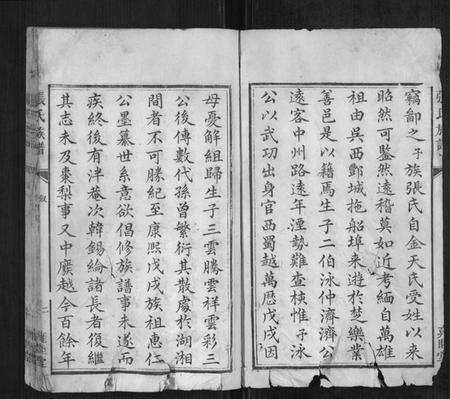 竊鄙之予族張氏自金天氏受姓以來
昭然可鑒然遠稽莫如近考緬自萬雄
祖由吳西鄞城拖船埠來遊於楚樂業
善邑是以籍焉生子二伯泳仲濟濟公
遠客中州路遠年湮勢難查核惟予泳
公以武功出身官西蜀越萬歷戊戌因
母憂解組歸生子三雲勝雲祥雲彩三
公後傳數代孫曾繁衍其散處於湖湘
間者不可勝紀至康熙戊戌族祖惠仁
公墨纂世系意欲倡修族譜事未遂而
疾終後有泮菴次韓錫綸諸長者復繼
其志未及棗梨事又中廢越今百餘年
張氏族譜
叙
二